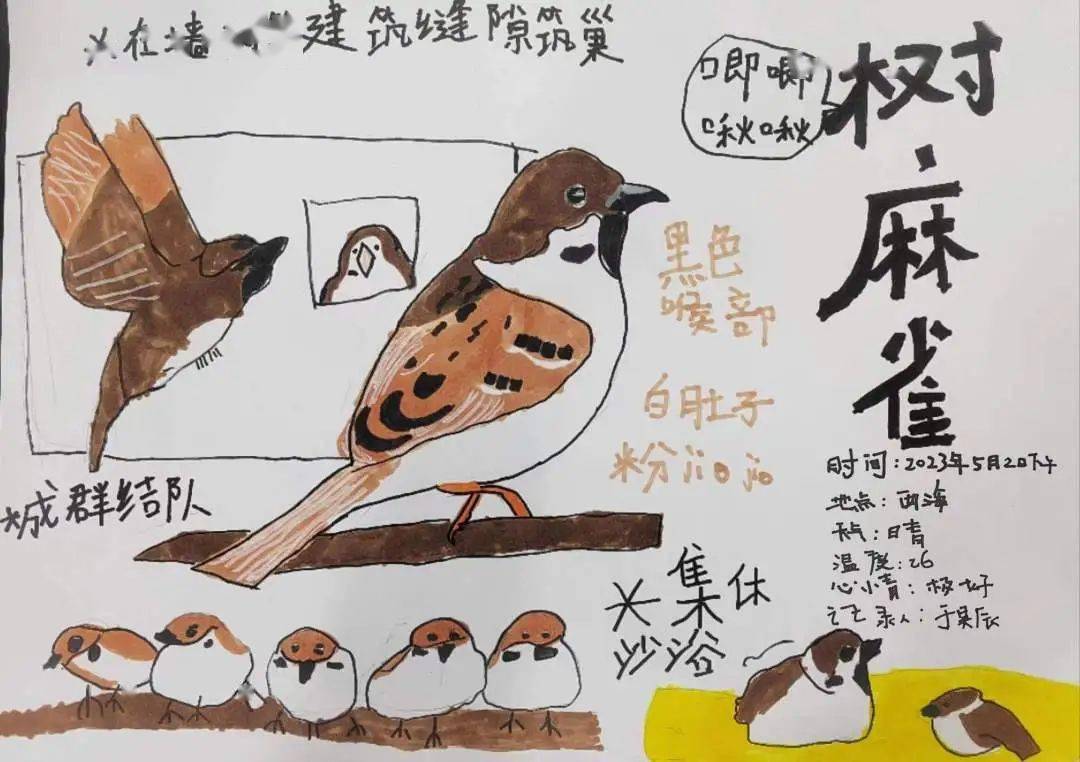 ※在墙 建筑缝隙筑巢
唧唧
啾啾
树麻雀
黑色
喉部
白肚子
粉jiojio
※成群结队
时间:2023年5月20下午
地点:西海
天气:晴
温度:26
心情:极好
记录人:于昊辰
※集体
沙浴